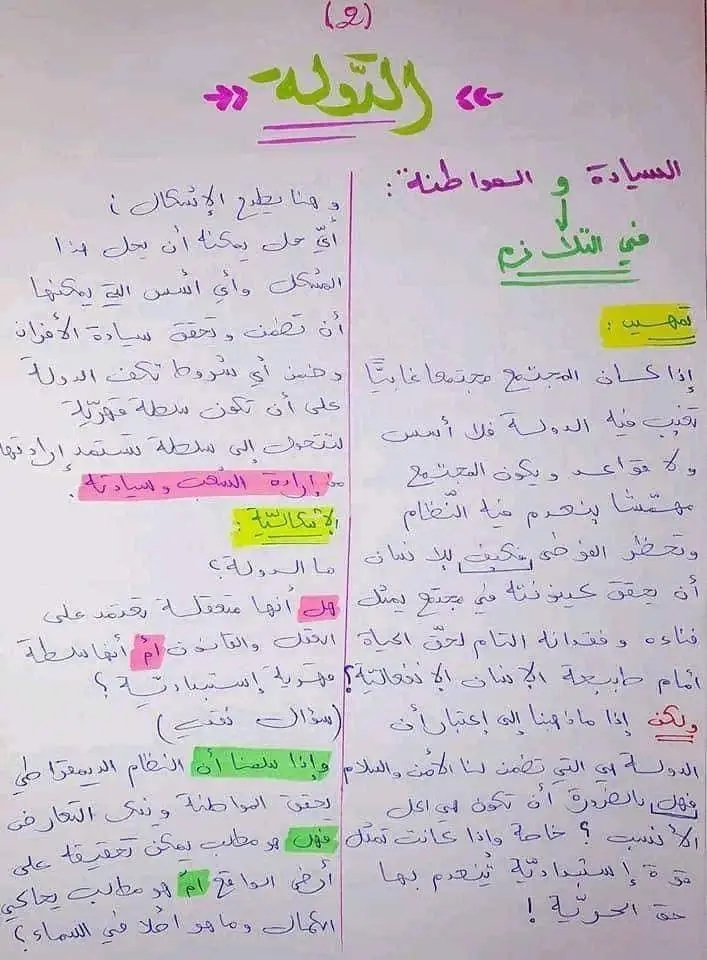 (2)
الدّولة
السيادة و المواطنة :
في التلازم
تمهيد :
إذا كان المجتمع مجتمعا غابيًّا
تغيب فيه الدولة فلا أسس
ولا قواعد ويكون المجتمع
مهمّشا ينعدم فيه النّظام
وتحظر الفوضى فكيف للإنسان
أن يحقق كينونته في مجتمع يمثل
فناءه وفقدانه التام لحقّ الحياة
أمام طبيعة الإنسان الإنفعاليّة؟
ولكن إذا ما ذهبنا إلى إعتبار أن
الدولة هي التي تضمن لنا الأمن والسلام
فهل بالضّرورة أن تكون هي الحل
الأنسب ؟ خاصة وإذا كانت تمثّل
قوة إستبداديّة يُنعدم بها
حق الحريّة !
و هنا يطرح الإشكال :
أيّ حل يمكنه أن يحل هذا
المشكل وأي أسس التي يمكنها
أن تضمن وتحقق سيادة الأفراد
وضمن أي شروط تكف الدولة
على أن تكون سلطة قهريّة
لتتحول إلى سلطة تستمد إرادتها
من إرادة الشّعب وسيادته .
الإشكاليّة :
ما الدولة؟
هل أنها متعقلة تعتمد على
العقل والقانون أم أنها سلطة
قهرية إستبداديّة ؟
(سؤال نقدي)
وإذا سلمنا أن النظام الديمقراطي
يحقق المواطنة وينفي التعارض
فهل هو مطلب يمكن تحقيقه على
أرض الواقع أم هو مطالب يحاكي
الكمال وما هو أحلا في السماء؟